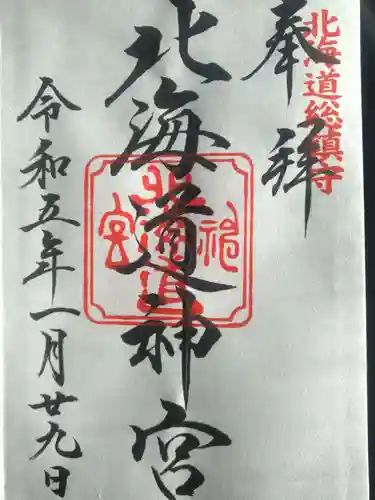 北海道総鎮守
奉拝
北海道神宮
北海道
神
宮
令和五年一月廿九日